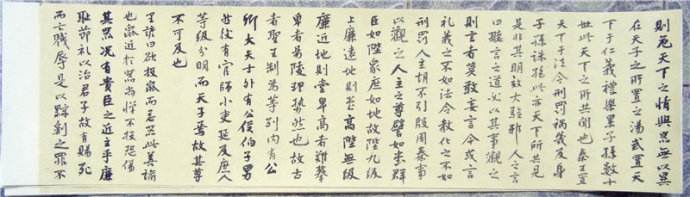 則危天下之情與器無以異
在天子之所置之湯武置天
下于仁義禮樂累子孫數十
世此天下之所共聞也秦王置
天下于法令刑罰禍幾及身
子孫誅絕此亦天下所共見
是非其明效大驗邪人之言
曰聽言之道必以其事觀之
則言者莫敢妄言今或言
禮義之不如法令教化之不如
刑罰人主胡不引殷周秦事
以觀之人主之尊譬如堂群
臣如陛眾庶如地故陛九級
上廉遠地則堂高陛無級
廉近地則堂卑高者難攀
卑者易陵理勢然也故古
者聖王制為等列內有公
卿大夫士外有公侯伯子男
然後有官師小吏延及庶人
等級分明而天子焉故其尊
不可及也
里諺曰欲投鼠而忌器此善諭
也鼠近於器尚憚不投恐傷
其器況有貴臣之近主乎廉
恥節禮以治君子故有賜死
而亡戮辱是以黥劓之罪不